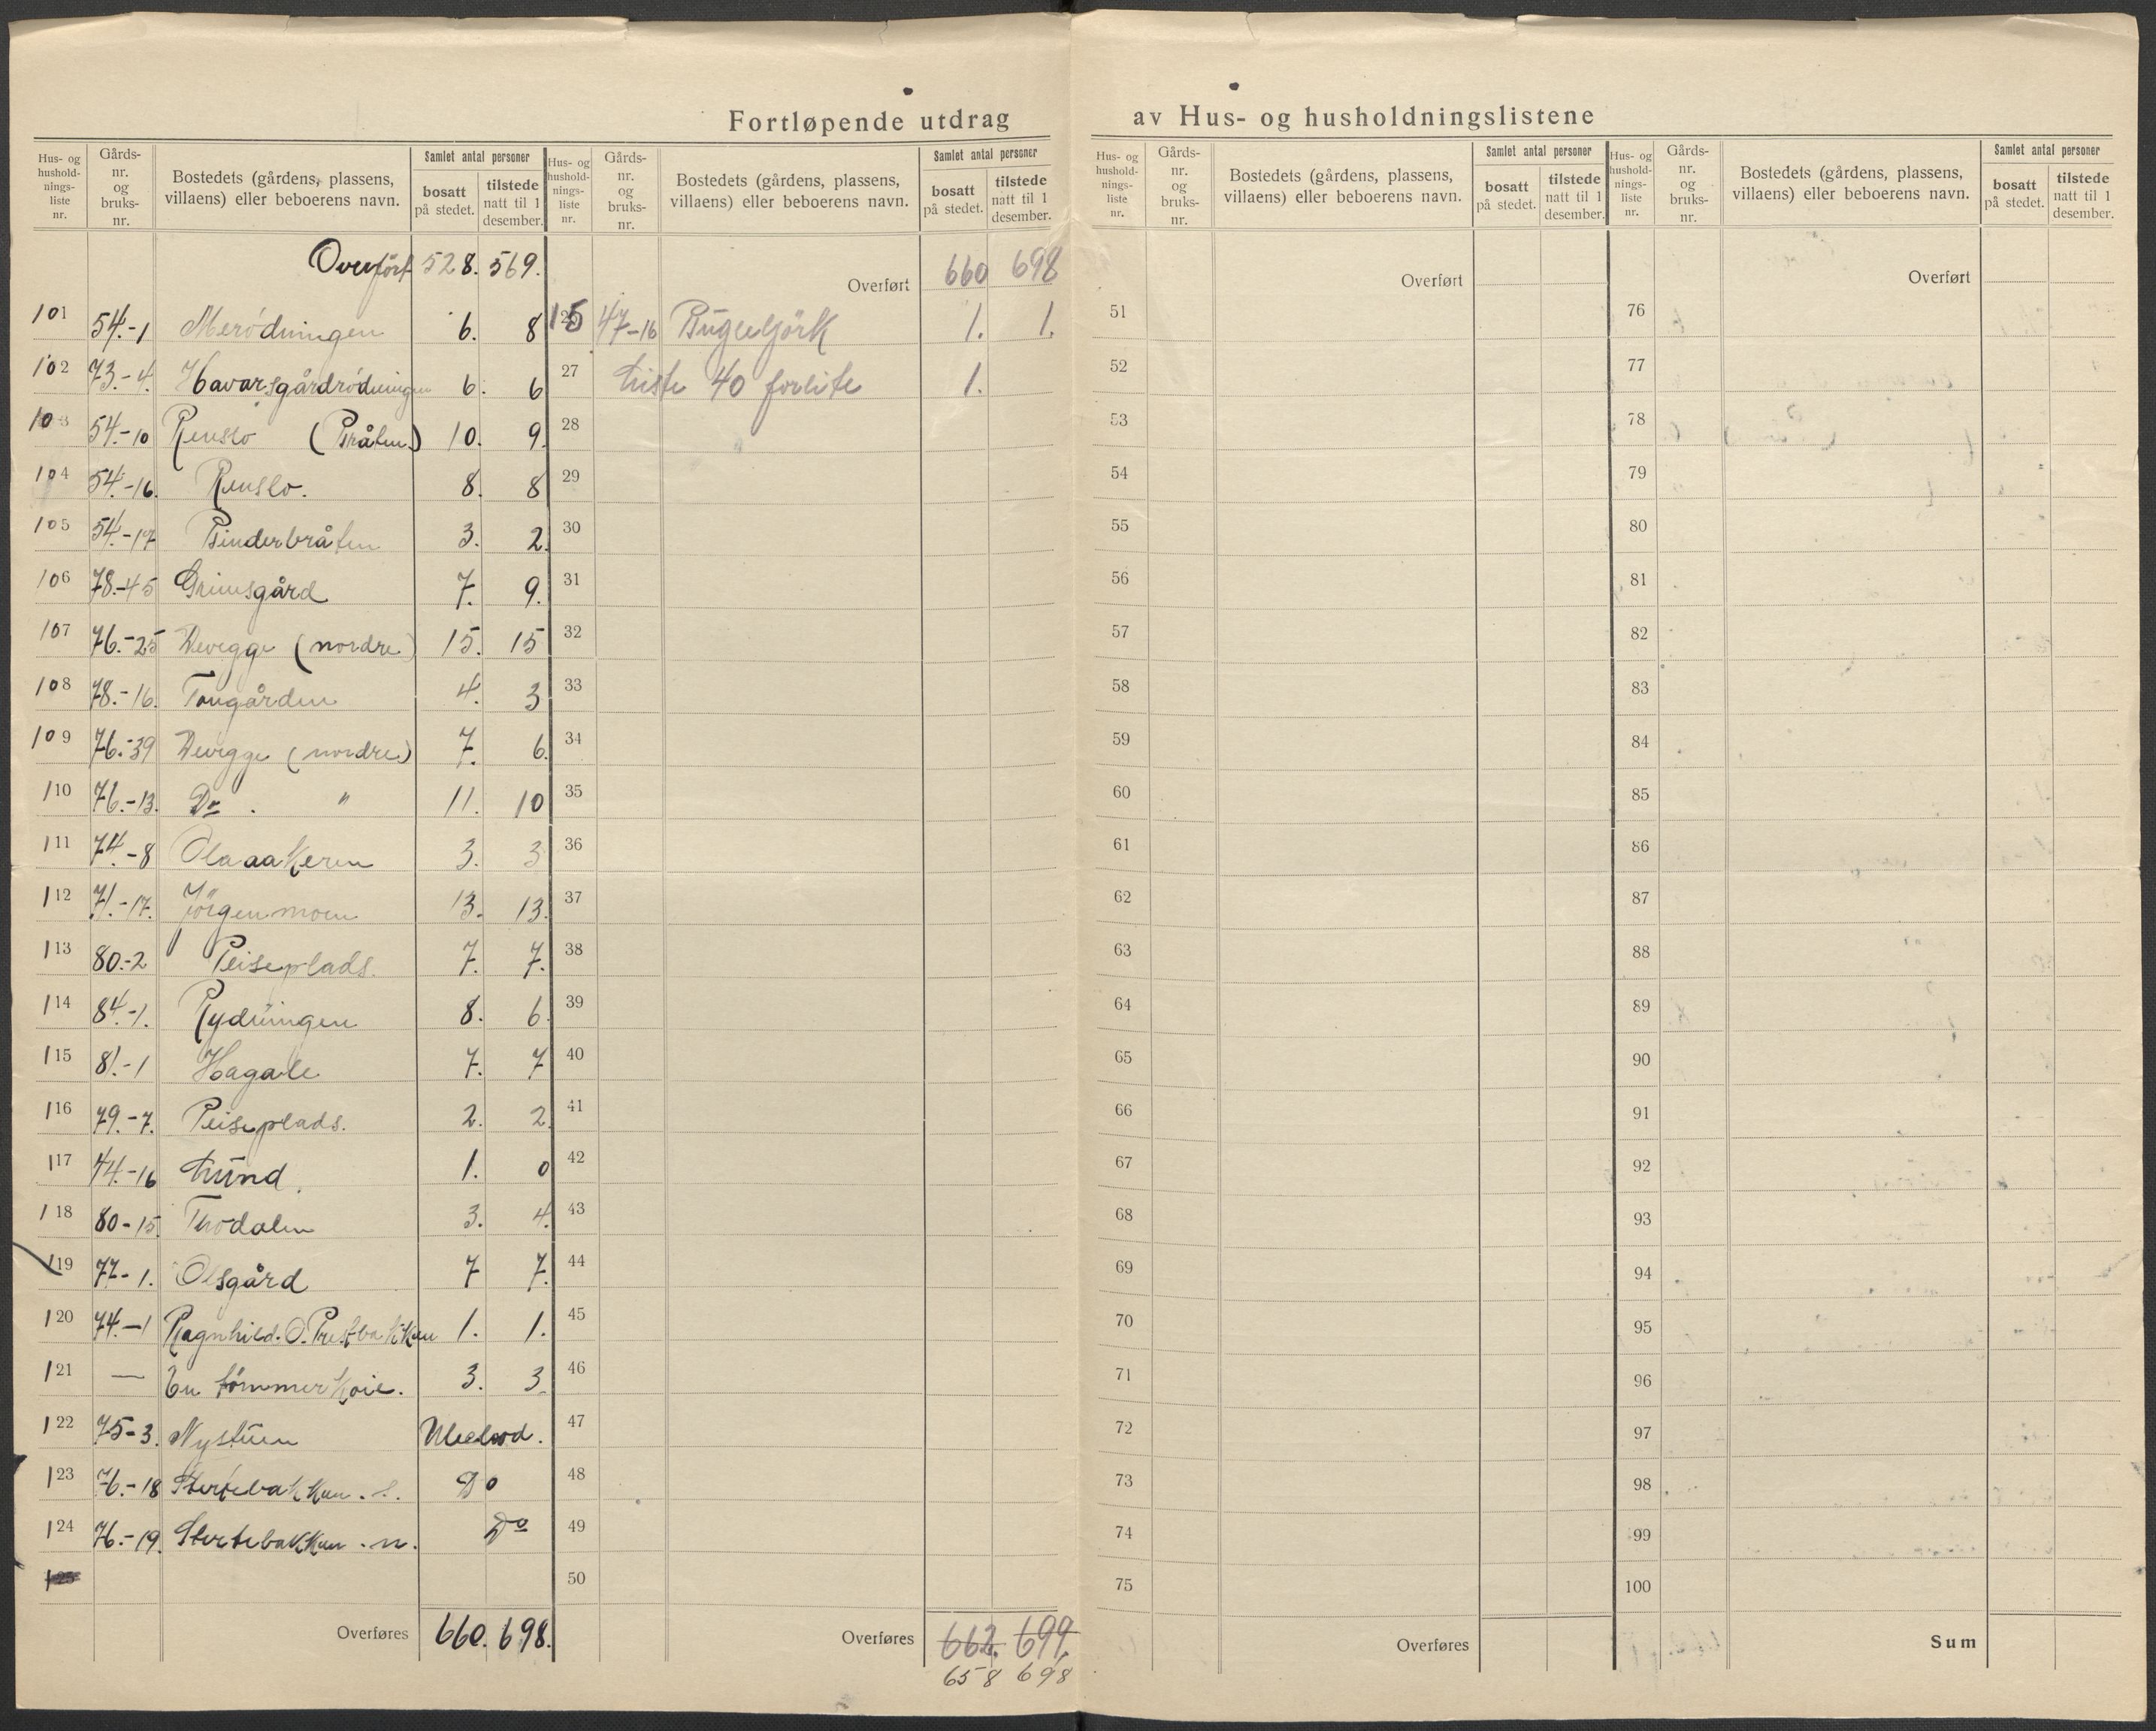 Fortløpende utdrag av Hus- og husholdningslistene
Hus- og husholdnings-liste nr. Gårds-nr. og bruks-nr. Bostedets (gårdens, plassens, villaens) eller beboerens navn. Samlet antal personer bosatt på stedet. tilstede natt til 1 desember.
Overført 528. 569.
101 54.-1 Merödningen 6. 8
102 73.-4. Havarsgårdrödningen 6. 6
103 54.-10 Renslo (Bråten) 10. 9.
104 54.-16. Renslo. 8. 8
105 54.-17 Binderbråten 3. 2.
106 78.-45 Grimsgård 7. 9.
107 76.-25 Devegge (nordre) 15. 15
108 78.-16. Tongården 4. 3
109 76.-39 Devegge (nordre) 7. 6.
110 76.-13. Do . " 11. 10
111 74.-8 Olaaakeren 3. 3
112 71.-17. Jörgenmoen 13. 13.
113 80.-2 Peiseplads. 7. 7.
114 84.-1. Rydningen 8. 6.
115 81.-1 Hagale 7. 7
116 79.-7. Peiseplads. 2. 2
117 44.-16 Lund. 1. 0
118 80-15. Thodalen 3. 4.
119 77-1. Olsgård 7 7.
120 74.-1 Ragnhild. O. Prestbakken 1. 1.
121 — En tömmerkoie. 3. 3.
122 75-3. Nystuen Ubebod.
123 76.-18 Stertebakken. s. Do
124 76.-19. Stertebakken. n. Do
125
Overføres 660. 698.
Hus- og husholdnings-liste nr. Gårds-nr. og bruks-nr. Bostedets (gårdens, plassens, villaens) eller beboerens navn. Samlet antal personer bosatt på stedet. tilstede natt til 1 desember.
Overført 660 698
47-16 1. 1.
27 Liste 40 forlite 1.
28
29
30
31
32
33
34
35
36
37
38
39
40
41
42
43
44
45
46
47
48
49
50
Overføres 662. 699.
658 698
Hus- og husholdnings-liste nr. Gårds-nr. og bruks-nr. Bostedets (gårdens, plassens, villaens) eller beboerens navn. Samlet antal personer bosatt på stedet. tilstede natt til 1 desember.
Overført
51
52
53
54
55
56
57
58
59
60
61
62
63
64
65
66
67
68
69
70
71
72
73
74
75
Overføres
Hus- og husholdnings-liste nr. Gårds-nr. og bruks-nr. Bostedets (gårdens, plassens, villaens) eller beboerens navn. Samlet antal personer bosatt på stedet. tilstede natt til 1 desember.
Overført
76
77
78
79
80
81
82
83
84
85
86
87
88
89
90
91
92
93
94
95
96
97
98
99
100
Sum